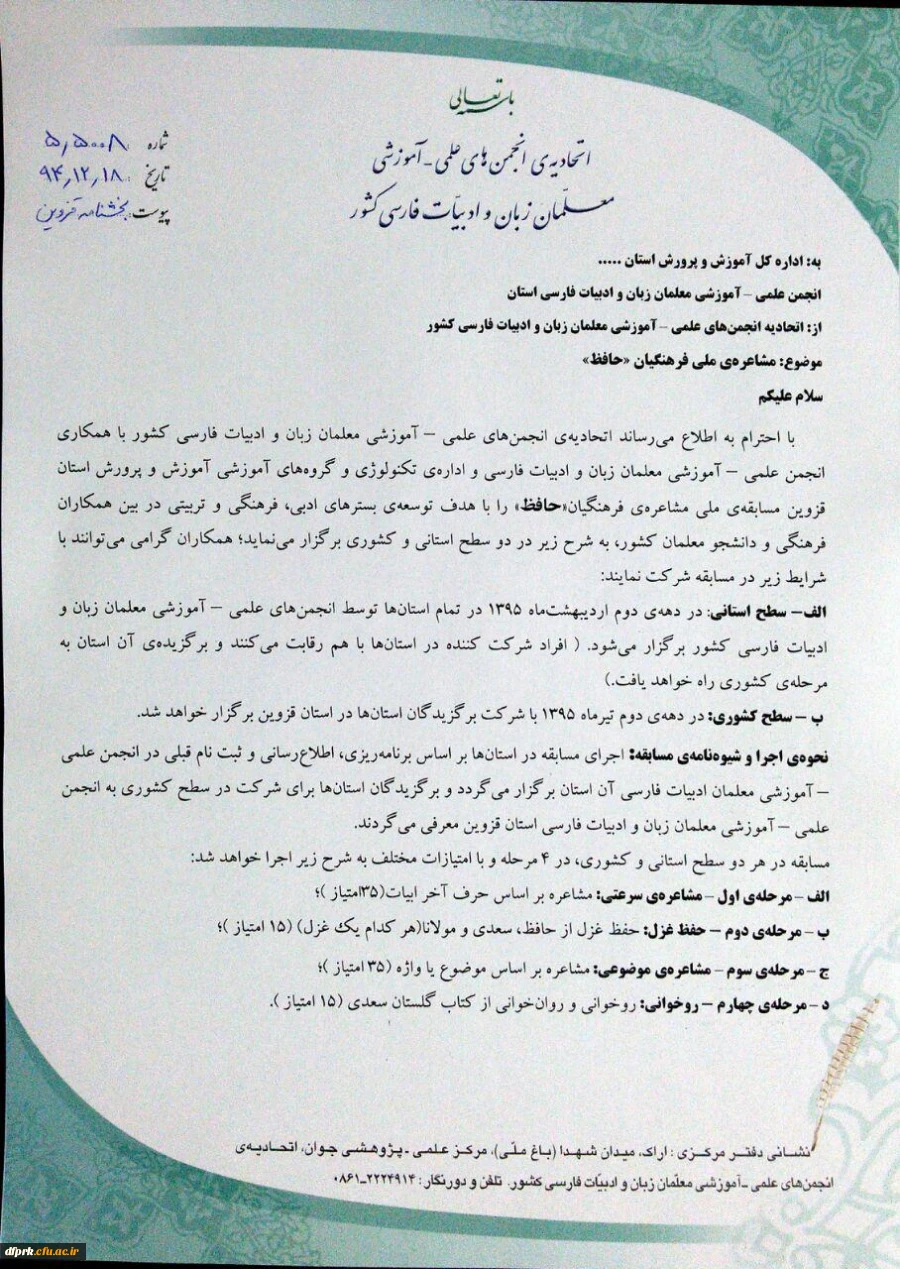 باسمه تعالی
اتحادیه‌ی انجمن‌های علمی - آموزشی
معلّمان زبان و ادبیّات فارسی کشور
شماره: ۵٫۵۰۰۸
تاریخ: ۹۴٫۱۲٫۱۸
پیوست: بخشنامه قزوین
به: اداره کل آموزش و پرورش استان .....
انجمن علمی – آموزشی معلمان زبان و ادبیات فارسی استان
از: اتحادیه انجمن‌های علمی – آموزشی معلمان زبان و ادبیات فارسی کشور
موضوع: مشاعره‌ی ملی فرهنگیان «حافظ»
سلام علیکم
با احترام به اطلاع می‌رساند اتحادیه‌ی انجمن‌های علمی – آموزشی معلمان زبان و ادبیات فارسی کشور با همکاری
انجمن علمی – آموزشی معلمان زبان و ادبیات فارسی و اداره‌ی تکنولوژی و گروه‌های آموزشی آموزش و پرورش استان
قزوین مسابقه‌ی ملی مشاعره‌ی فرهنگیان«حافظ» را با هدف توسعه‌ی بسترهای ادبی، فرهنگی و تربیتی در بین همکاران
فرهنگی و دانشجو معلمان کشور، به شرح زیر در دو سطح استانی و کشوری برگزار می‌نماید؛ همکاران گرامی می‌توانند با
شرایط زیر در مسابقه شرکت نمایند:
الف– سطح استانی: در دهه‌ی دوم اردیبهشت‌ماه ۱۳۹۵ در تمام استان‌ها توسط انجمن‌های علمی – آموزشی معلمان زبان و
ادبیات فارسی کشور برگزار می‌شود. ( افراد شرکت کننده در استان‌ها با هم رقابت می‌کنند و برگزیده‌ی آن استان به
مرحله‌ی کشوری راه خواهد یافت.)
ب – سطح کشوری: در دهه‌ی دوم تیرماه ۱۳۹۵ با شرکت برگزیدگان استان‌ها در استان قزوین برگزار خواهد شد.
نحوه‌ی اجرا و شیوه‌نامه‌ی مسابقه: اجرای مسابقه در استان‌ها بر اساس برنامه‌ریزی، اطلاع‌رسانی و ثبت نام قبلی در انجمن علمی
– آموزشی معلمان ادبیات فارسی آن استان برگزار می‌گردد و برگزیدگان استان‌ها برای شرکت در سطح کشوری به انجمن
علمی – آموزشی معلمان زبان و ادبیات فارسی استان قزوین معرفی می‌گردند.
مسابقه در هر دو سطح استانی و کشوری، در ۴ مرحله و با امتیازات مختلف به شرح زیر اجرا خواهد شد:
الف – مرحله‌ی اول – مشاعره‌ی سرعتی: مشاعره بر اساس حرف آخر ابیات(۳۵امتیاز )؛
ب – مرحله‌ی دوم – حفظ غزل: حفظ غزل از حافظ، سعدی و مولانا(هر کدام یک غزل) (۱۵ امتیاز )؛
ج – مرحله‌ی سوم – مشاعره‌ی موضوعی: مشاعره بر اساس موضوع یا واژه (۳۵ امتیاز )؛
د – مرحله‌ی چهارم – روخوانی: روخوانی و روان‌خوانی از کتاب گلستان سعدی (۱۵ امتیاز ).
نشانی دفتر مرکزی : اراک، میدان شهدا (باغ ملّی)، مرکز علمی - پژوهشی جوان، اتحادیه‌ی
انجمن‌های علمی - آموزشی معلّمان زبان و ادبیّات فارسی کشور. تلفن و دورنگار: ۲۲۲۴۹۱۴-۰۸۶۱
dfprk.cfu.ac.ir